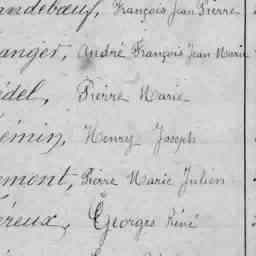 andebœuf, François Jean Pierre
anger, André François Jean Marie
édel, Pierre Marie
émin, Henry Joseph
emont, Pierre Marie Julien
éreux, Georges Réné